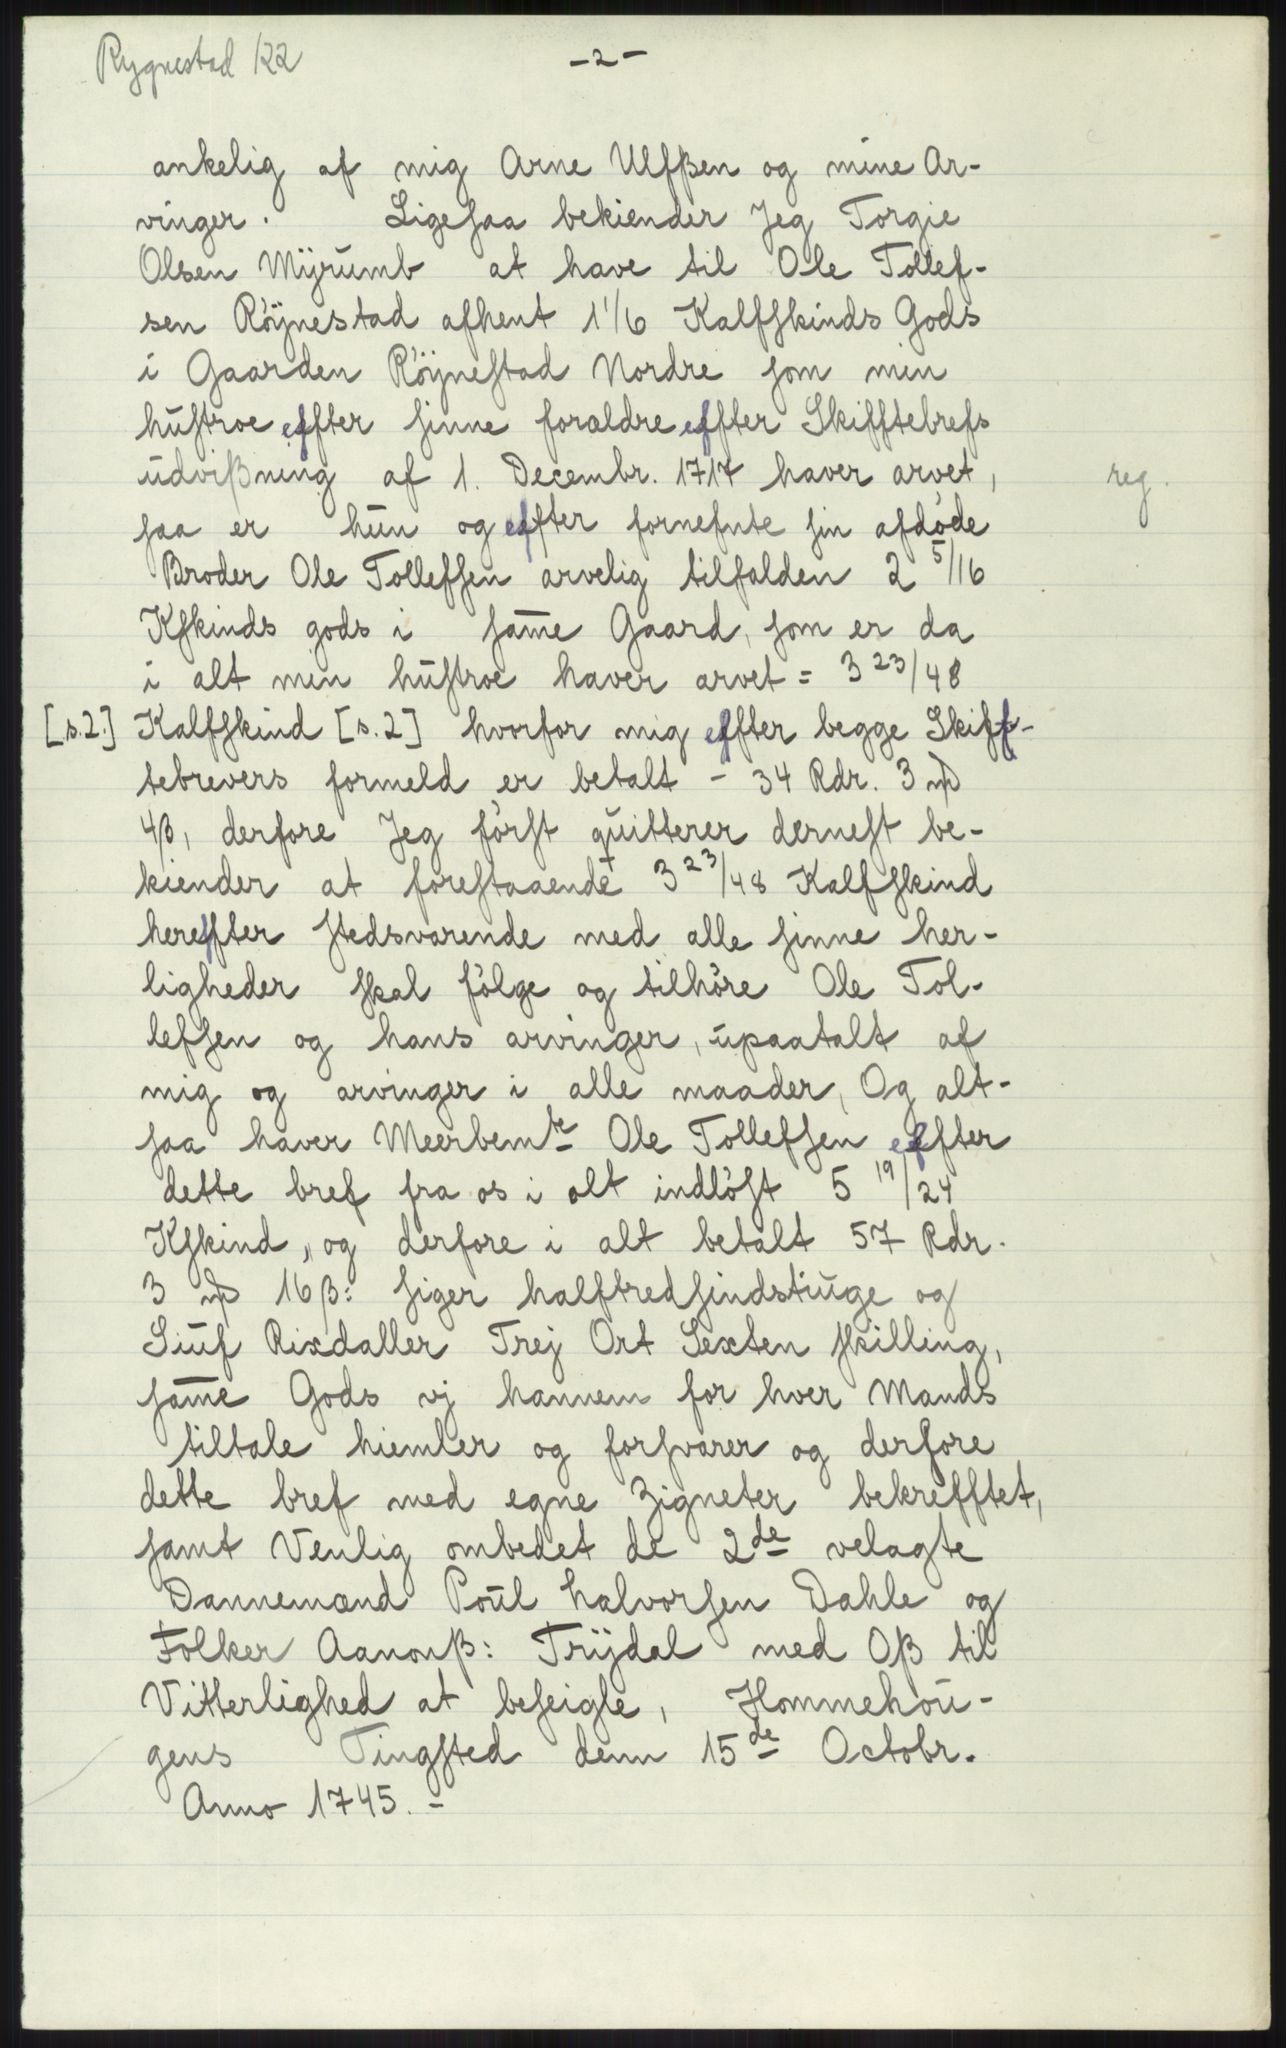 Rygnestad 122
- 2 -
ankelig af mig Arne Ulfßen og mine Ar-
vinger. Ligesaa bekiender Jeg Torgie
Olsen Mÿrumb at have til Ole Tollef-
sen Röÿnestad afhent 1 1/6 Kalfskinds Gods
i Gaarden Röÿnestad Nordre som min
hustroe effter sinne forældre effter Skifftebrefs
udvißning af 1. Decembr. 1717 haver arvet, reg.
saa er hun og effter fornefnte sin afdøde
Broder Ole Tollefsen arvelig tilfalden 2 5/16
Kskinds gods i sam̅e Gaard, som er da
i alt min hustroe haver arvet = 3 23/48
[s.2.] Kalfskind [s.2] hvorfor mig effter begge Skiff-
tebrevers formeld er betalt - 34 Rdr. 3 
4β, derfore Jeg først quitterer dernest be-
kiender at forestaaende 3 23/48 Kalfskind
hereffter stedsvarende med alle sinne her-
ligheder skal følge og tilhöre Ole Tol-
lefsen og hans arvinger, upaatalt af
mig og arvinger i alle maader, Og alt-
saa haver Meerbemte Ole Tollefsen effter
dette bref fra os i alt indløst 5 19/24
Kskind, og derfore i alt betalt 57 Rdr.
3 16β: siger halftredsindstiuge og
Siuf Rixdaller Trej Ort Sexten skilling,
sam̅e Gods vj hannem for hver Mands
tiltale hiemler og forsvarer og derfore
dette bref med egne Zigneter bekrefftet,
samt Venlig ombedet de 2de velagte
Dannemænd Poul halvorsen Dahle og
Folker Aanonß: Trÿdal med Oß til
Vitterlighed at beseigle, Hommehou-
gens Tingsted denn 15de Octobr.
Anno 1745. -